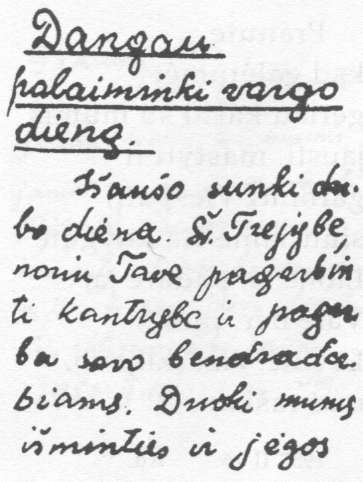 Dangau
palaiminki vargo
dieną.
Išaušo sunki dar
bo diena. Šv. Trejybe,
noriu Tave pagerbin
ti kantrybe ir pagar
ba savo bendradar
biams. Duoki mums
išminties ir jėgos